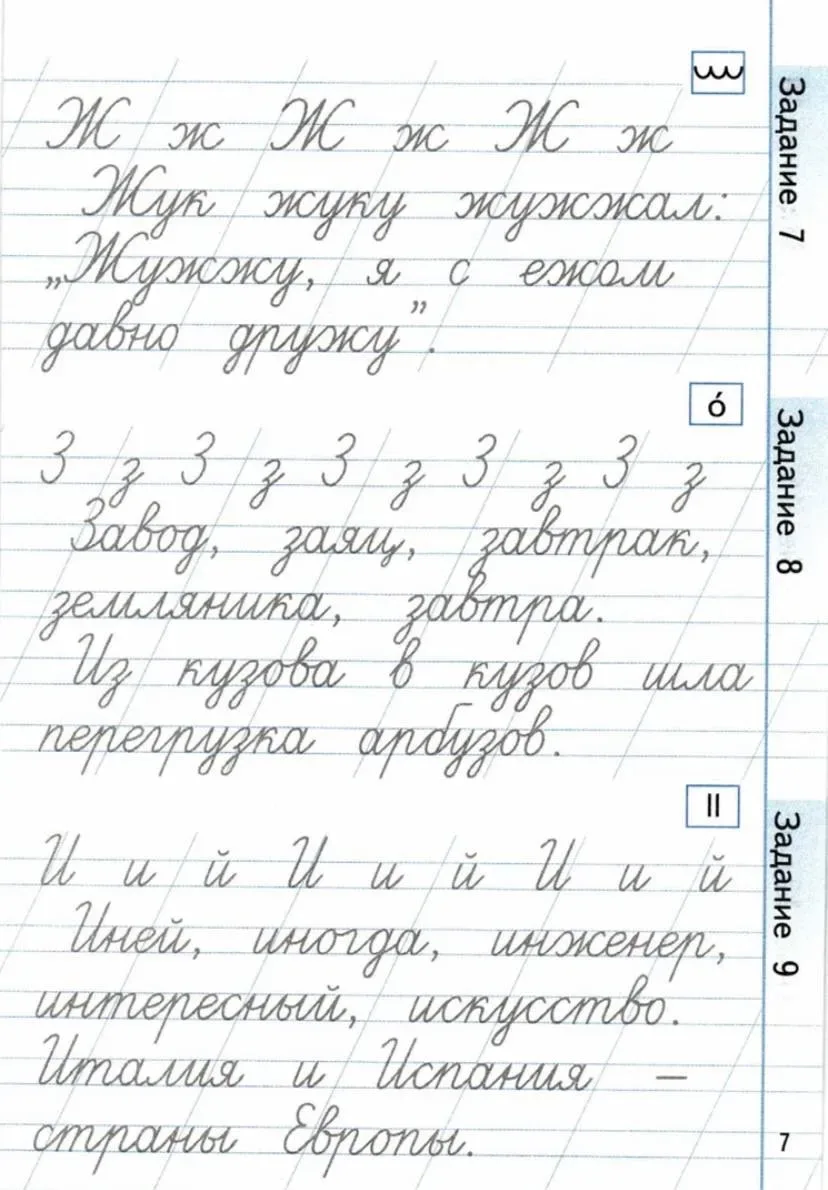 Задание 7
Ж ж Ж ж Ж ж
Жук жуку жужжал:
„Жужжу, я с ежом
давно дружу”.
Задание 8
ó
З з З з З з З з З з
Завод, заяц, завтрак,
земляника, завтра.
Из кузова в кузов шла
перегрузка арбузов.
Задание 9
И и й И и й И и й
Иней, иногда, инженер,
интересный, искусство.
Италия и Испания –
страны Европы.
7